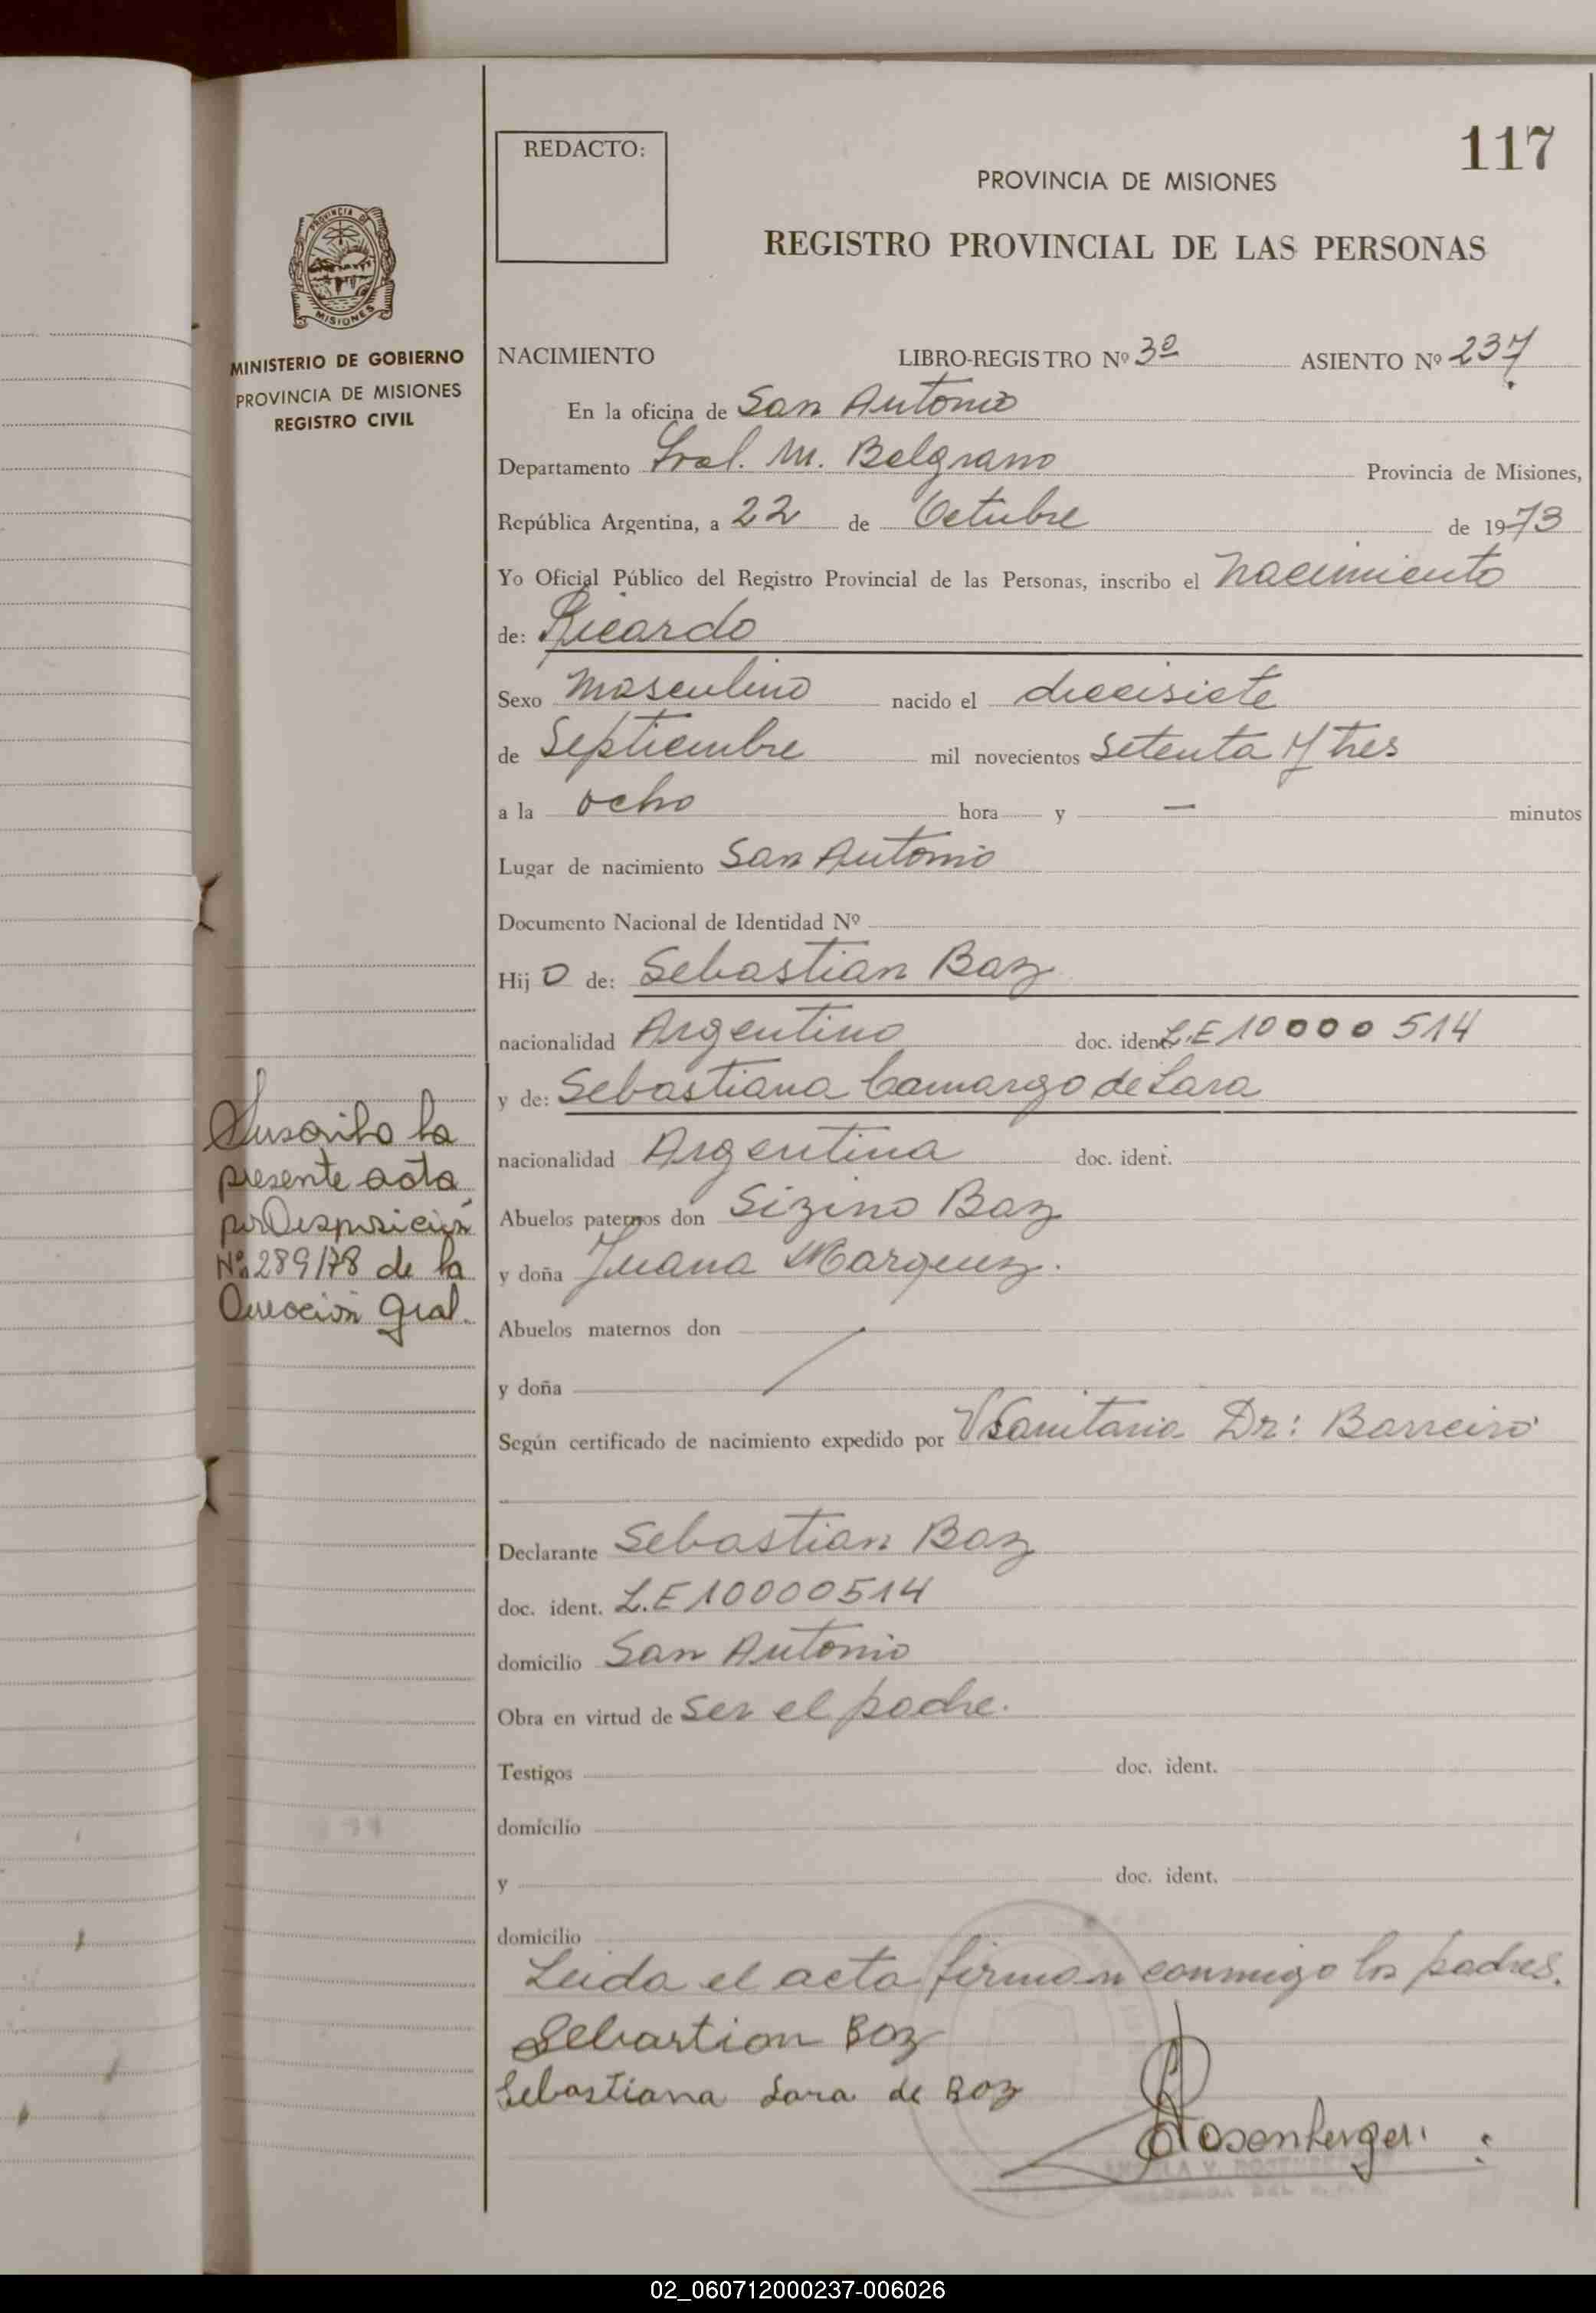 117
REDACTO:
PROVINCIA DE MISIONES
REGISTRO PROVINCIAL DE LAS PERSONAS
PROVINCIA DE
MISIONES
MINISTERIO DE GOBIERNO
PROVINCIA DE MISIONES
REGISTRO CIVIL
NACIMIENTO LIBRO-REGISTRO Nº 3º ASIENTO Nº 237
En la oficina de San Antonio
Departamento Gral. M. Belgrano Provincia de Misiones,
República Argentina, a 22 de Octubre de 1973
Yo Oficial Público del Registro Provincial de las Personas, inscribo el nacimiento
de: Ricardo
Sexo masculino nacido el diecisiete
de Septiembre mil novecientos setenta y tres
a la ocho hora y — minutos
Lugar de nacimiento San Antonio
Documento Nacional de Identidad Nº
Hijo de: Sebastian Baz
nacionalidad Argentino doc. ident. L.E 10000514
y de: Sebastiana Camargo de Lara
nacionalidad Argentina doc. ident.
Abuelos paternos don Sizino Baz
y doña Juana Marquez.
Abuelos maternos don
y doña
Según certificado de nacimiento expedido por Sanitaria Dr: Barreiro
Declarante Sebastian Baz
doc. ident. L.E 10000514
domicilio San Antonio
Obra en virtud de ser el padre.
Testigos doc. ident.
domicilio
y doc. ident.
domicilio
Leida el acta firman conmigo los padres.
Sebastian Boz
Sebastiana Lara de Boz
Rosenberger
Suscribo la
presente acta
por Disposición
Nº 289/78 de la
Dirección Gral.
02_060712000237-006026